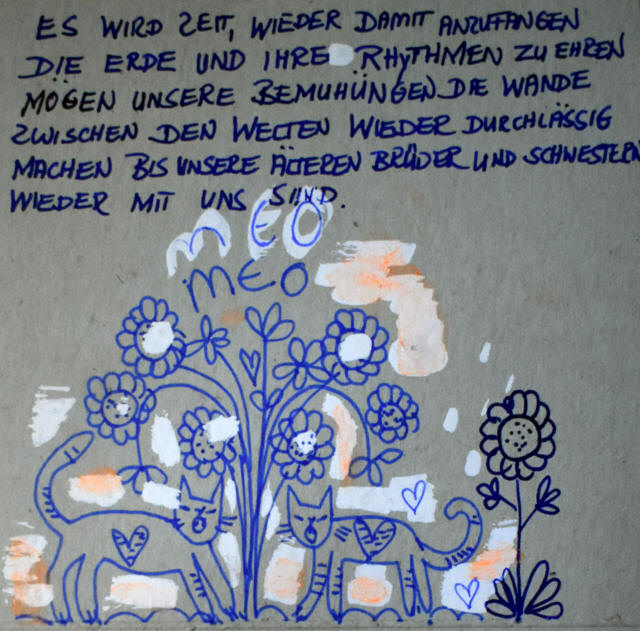 ES WIRD ZEIT, WIEDER DAMIT ANZUFANGEN
DIE ERDE UND IHRE RHYTHMEN ZU EHREN
MÖGEN UNSERE BEMUHÜNGEN DIE WANDE
ZWISCHEN DEN WELTEN WIEDER DURCHLÄSSIG
MACHEN BIS UNSERE ÄLTEREN BRÜDER UND SCHWESTERN
WIEDER MIT UNS SIND.
MEO
MEO